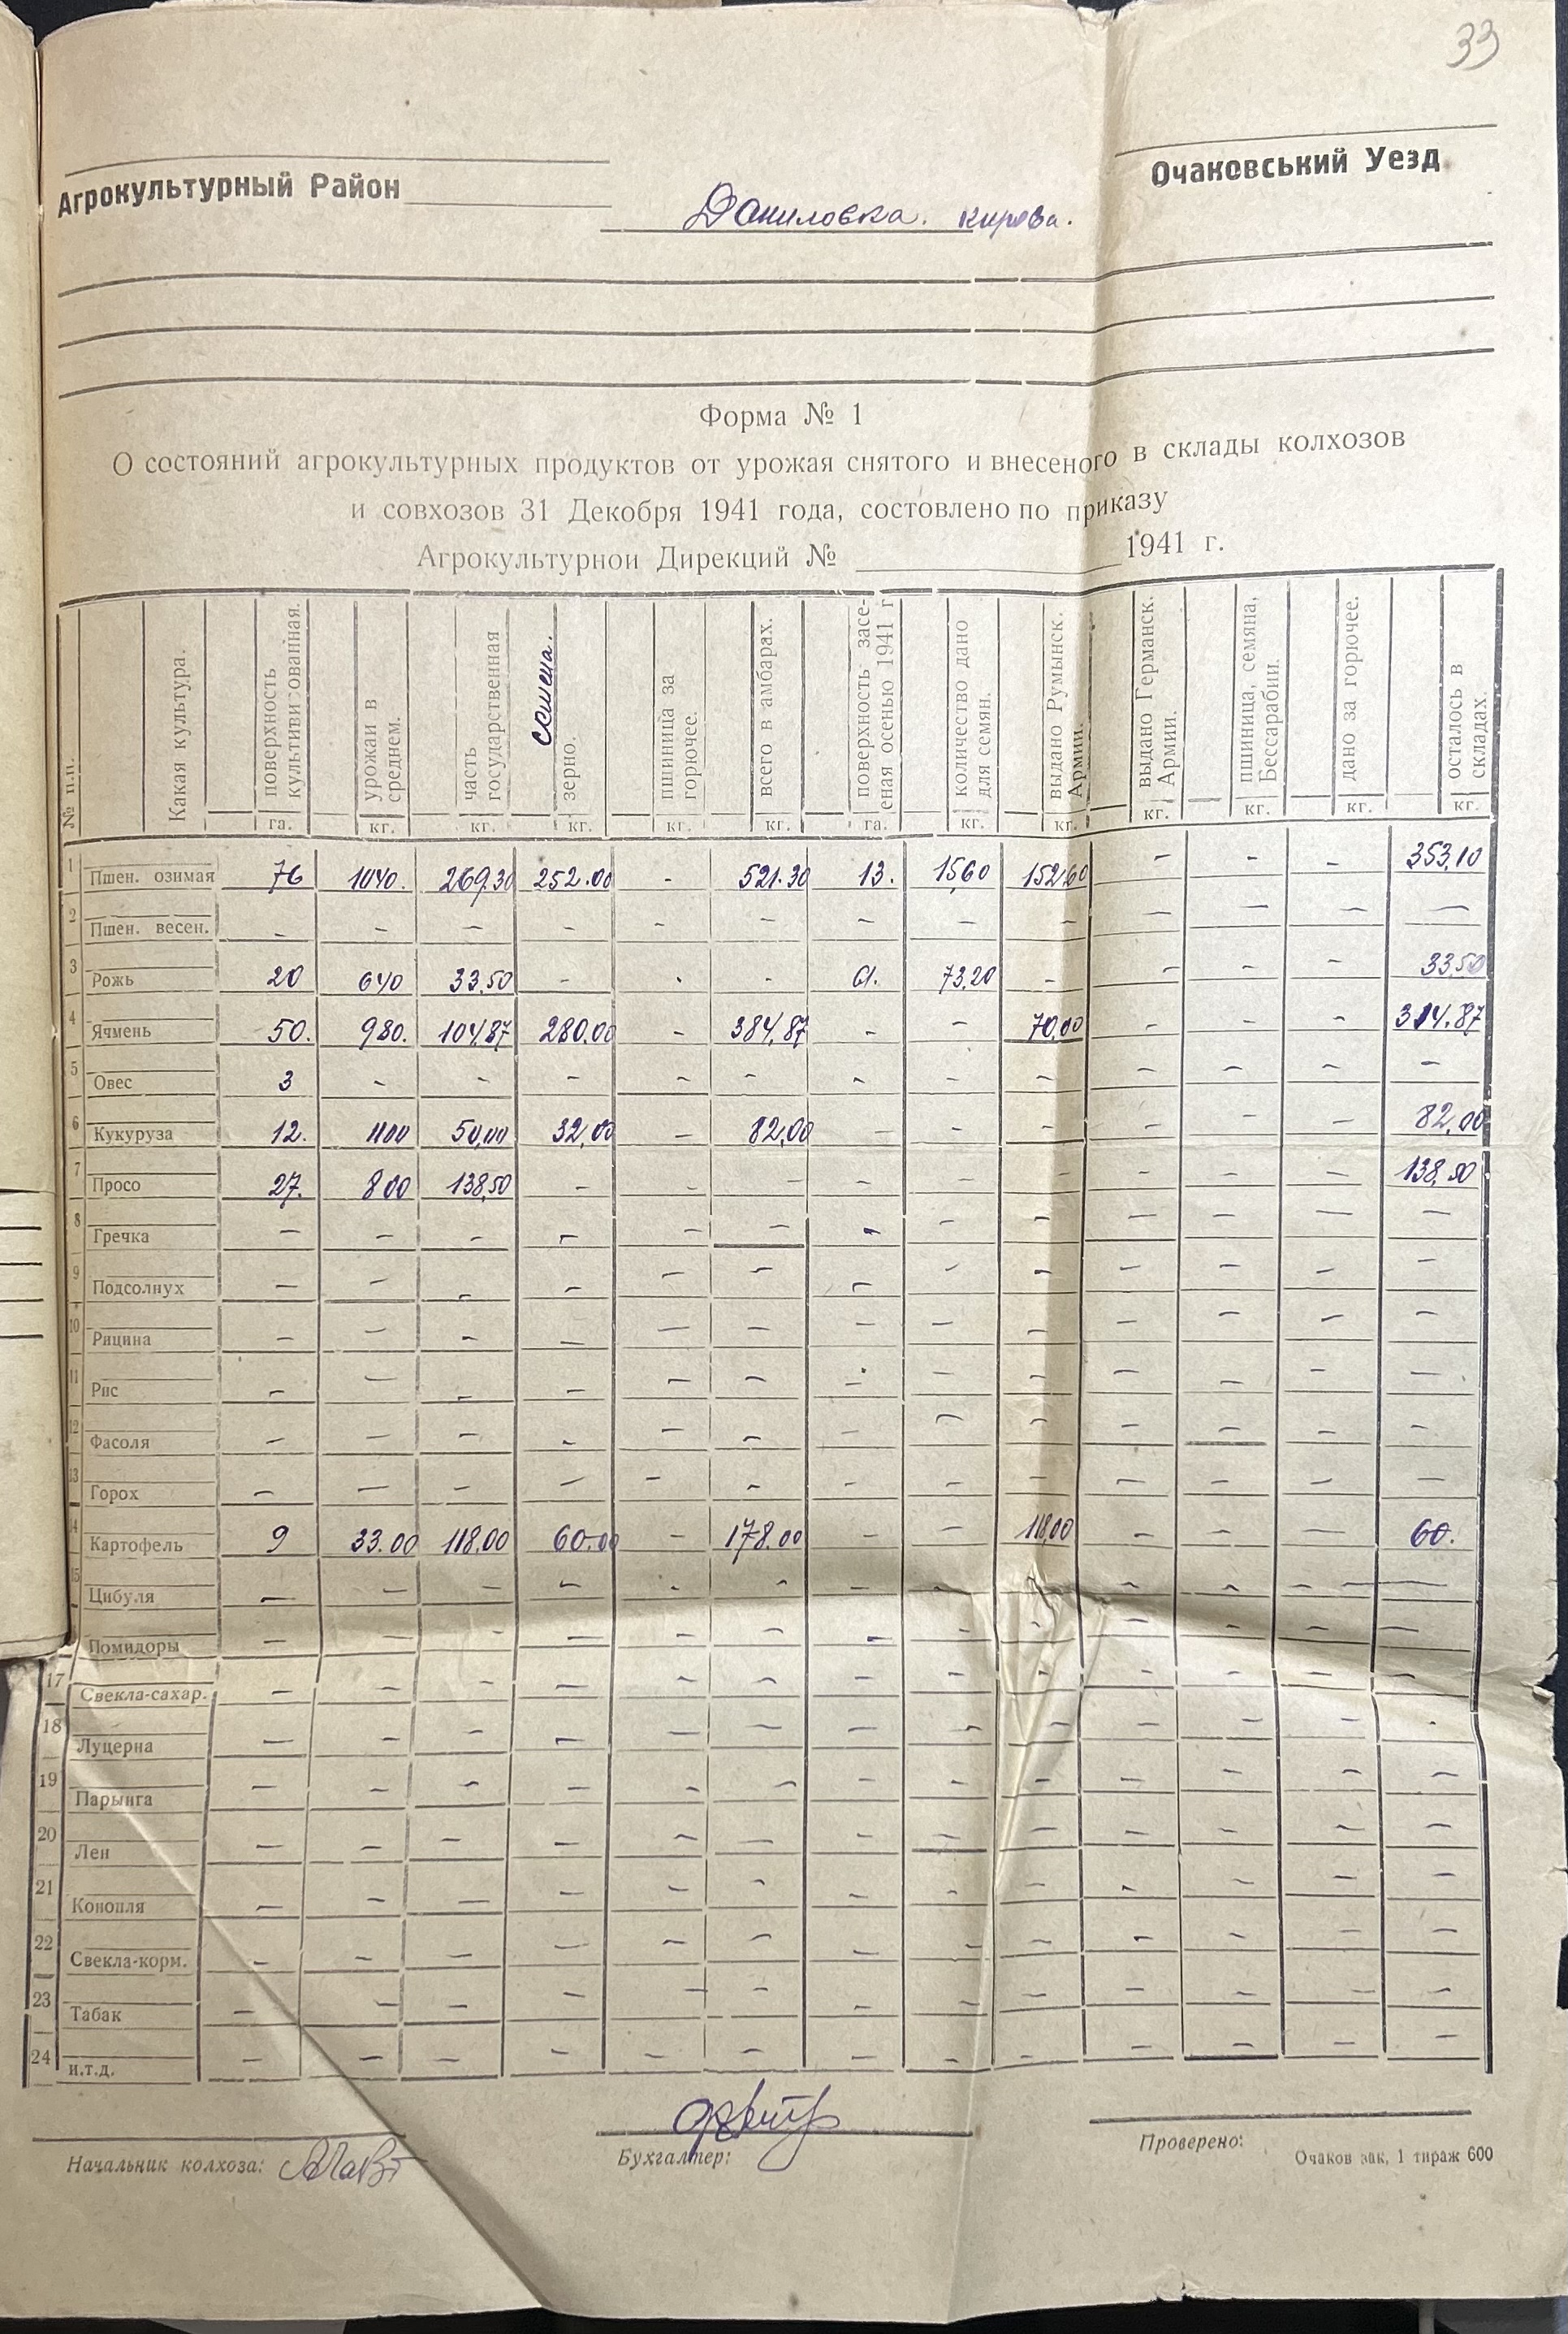 33
Агрокультурный Район
Очаковський Уезд
Даниловка. кирова.
Форма № 1
О состояний агрокультурных продуктов от урожая снятого и внесеного в склады колхозов
и совхозов 31 Декобря 1941 года, состовлено по приказу
Агрокультурнои Дирекций № 1941 г.
№ п.п. Какая культура. поверхность культивированная. га. урожаи в среднем. кг. часть государственная кг. семена. зерно. кг. пшиница за горючее. кг. всего в амбарах. кг. поверхность засееная осенью 1941 г га. количество дано для семян. кг. выдано Румынск. Армии. кг. выдано Германск. Армии. кг. пшиница, семяна, Бессарабии. кг. дано за горючее. кг. осталось в складах. кг.
1 Пшен. озимая 76 1040. 269.30 252.00 - 521.30 13. 1560 152,60 - - - 353,10
2 Пшен. весен. - - - - - - - - - - - - -
3 Рожь 20 640 33,50 - - - 73,20 - - - - 33,50
4 Ячмень 50. 980. 104,87 280.00 - 384,87 - - 70,00 - - - 314.87
5 Овес 3 - - - - - - - - - - - -
6 Кукуруза 12. 1100 50,00 32,00 - 82,00 - - - - - - 82,00
7 Просо 27. 800 138,50 - - - - - - - - - 138,50
8 Гречка - - - - - - - - - - - - -
9 Подсолнух - - - - - - - - - - - - -
10 Рицина - - - - - - - - - - - - -
11 Рис - - - - - - - - - - - - -
12 Фасоля - - - - - - - - - - - - -
13 Горох - - - - - - - - - - - - -
14 Картофель 9 33.00 118,00 60.00 - 178.00 - - 118,00 - - - 60.
15 Цибуля - - - - - - - - - - - - -
Помидоры - - - - - - - - - - - - -
17 Свекла-сахар. - - - - - - - - - - - - -
18 Луцерна - - - - - - - - - - - - -
19 Парынга - - - - - - - - - - - - -
20 Лен - - - - - - - - - - - - -
21 Конопля - - - - - - - - - - - - -
22 Свекла-корм. - - - - - - - - - - - - -
23 Табак - - - - - - - - - - - - -
24 и.т.д. - - - - - - - - - - - - -
Начальник колхоза:
Бухгалтер:
Проверено:
Очаков зак, 1 тираж 600